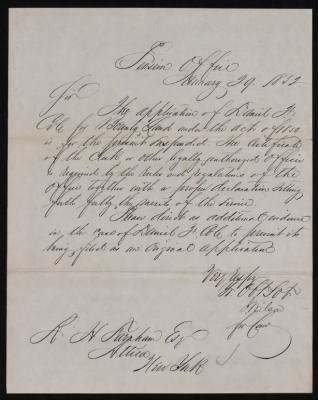 Pension Office
January 29. 1852
Sir
The application of Daniel H.
Cole for Bounty Land under the Act of 1850
is for the present suspended. The Certificate
of the Clerk or other legally authorized officer
is required by the rules and regulations of the
office together with a proper declaration setting
forth fully the merits of the service.
as additional evidence
in the case of Daniel H. Cole, to prevent its
being filed as an Original Application
Very Respy
for Com
R. H. Farnham Esq
Attica
New York